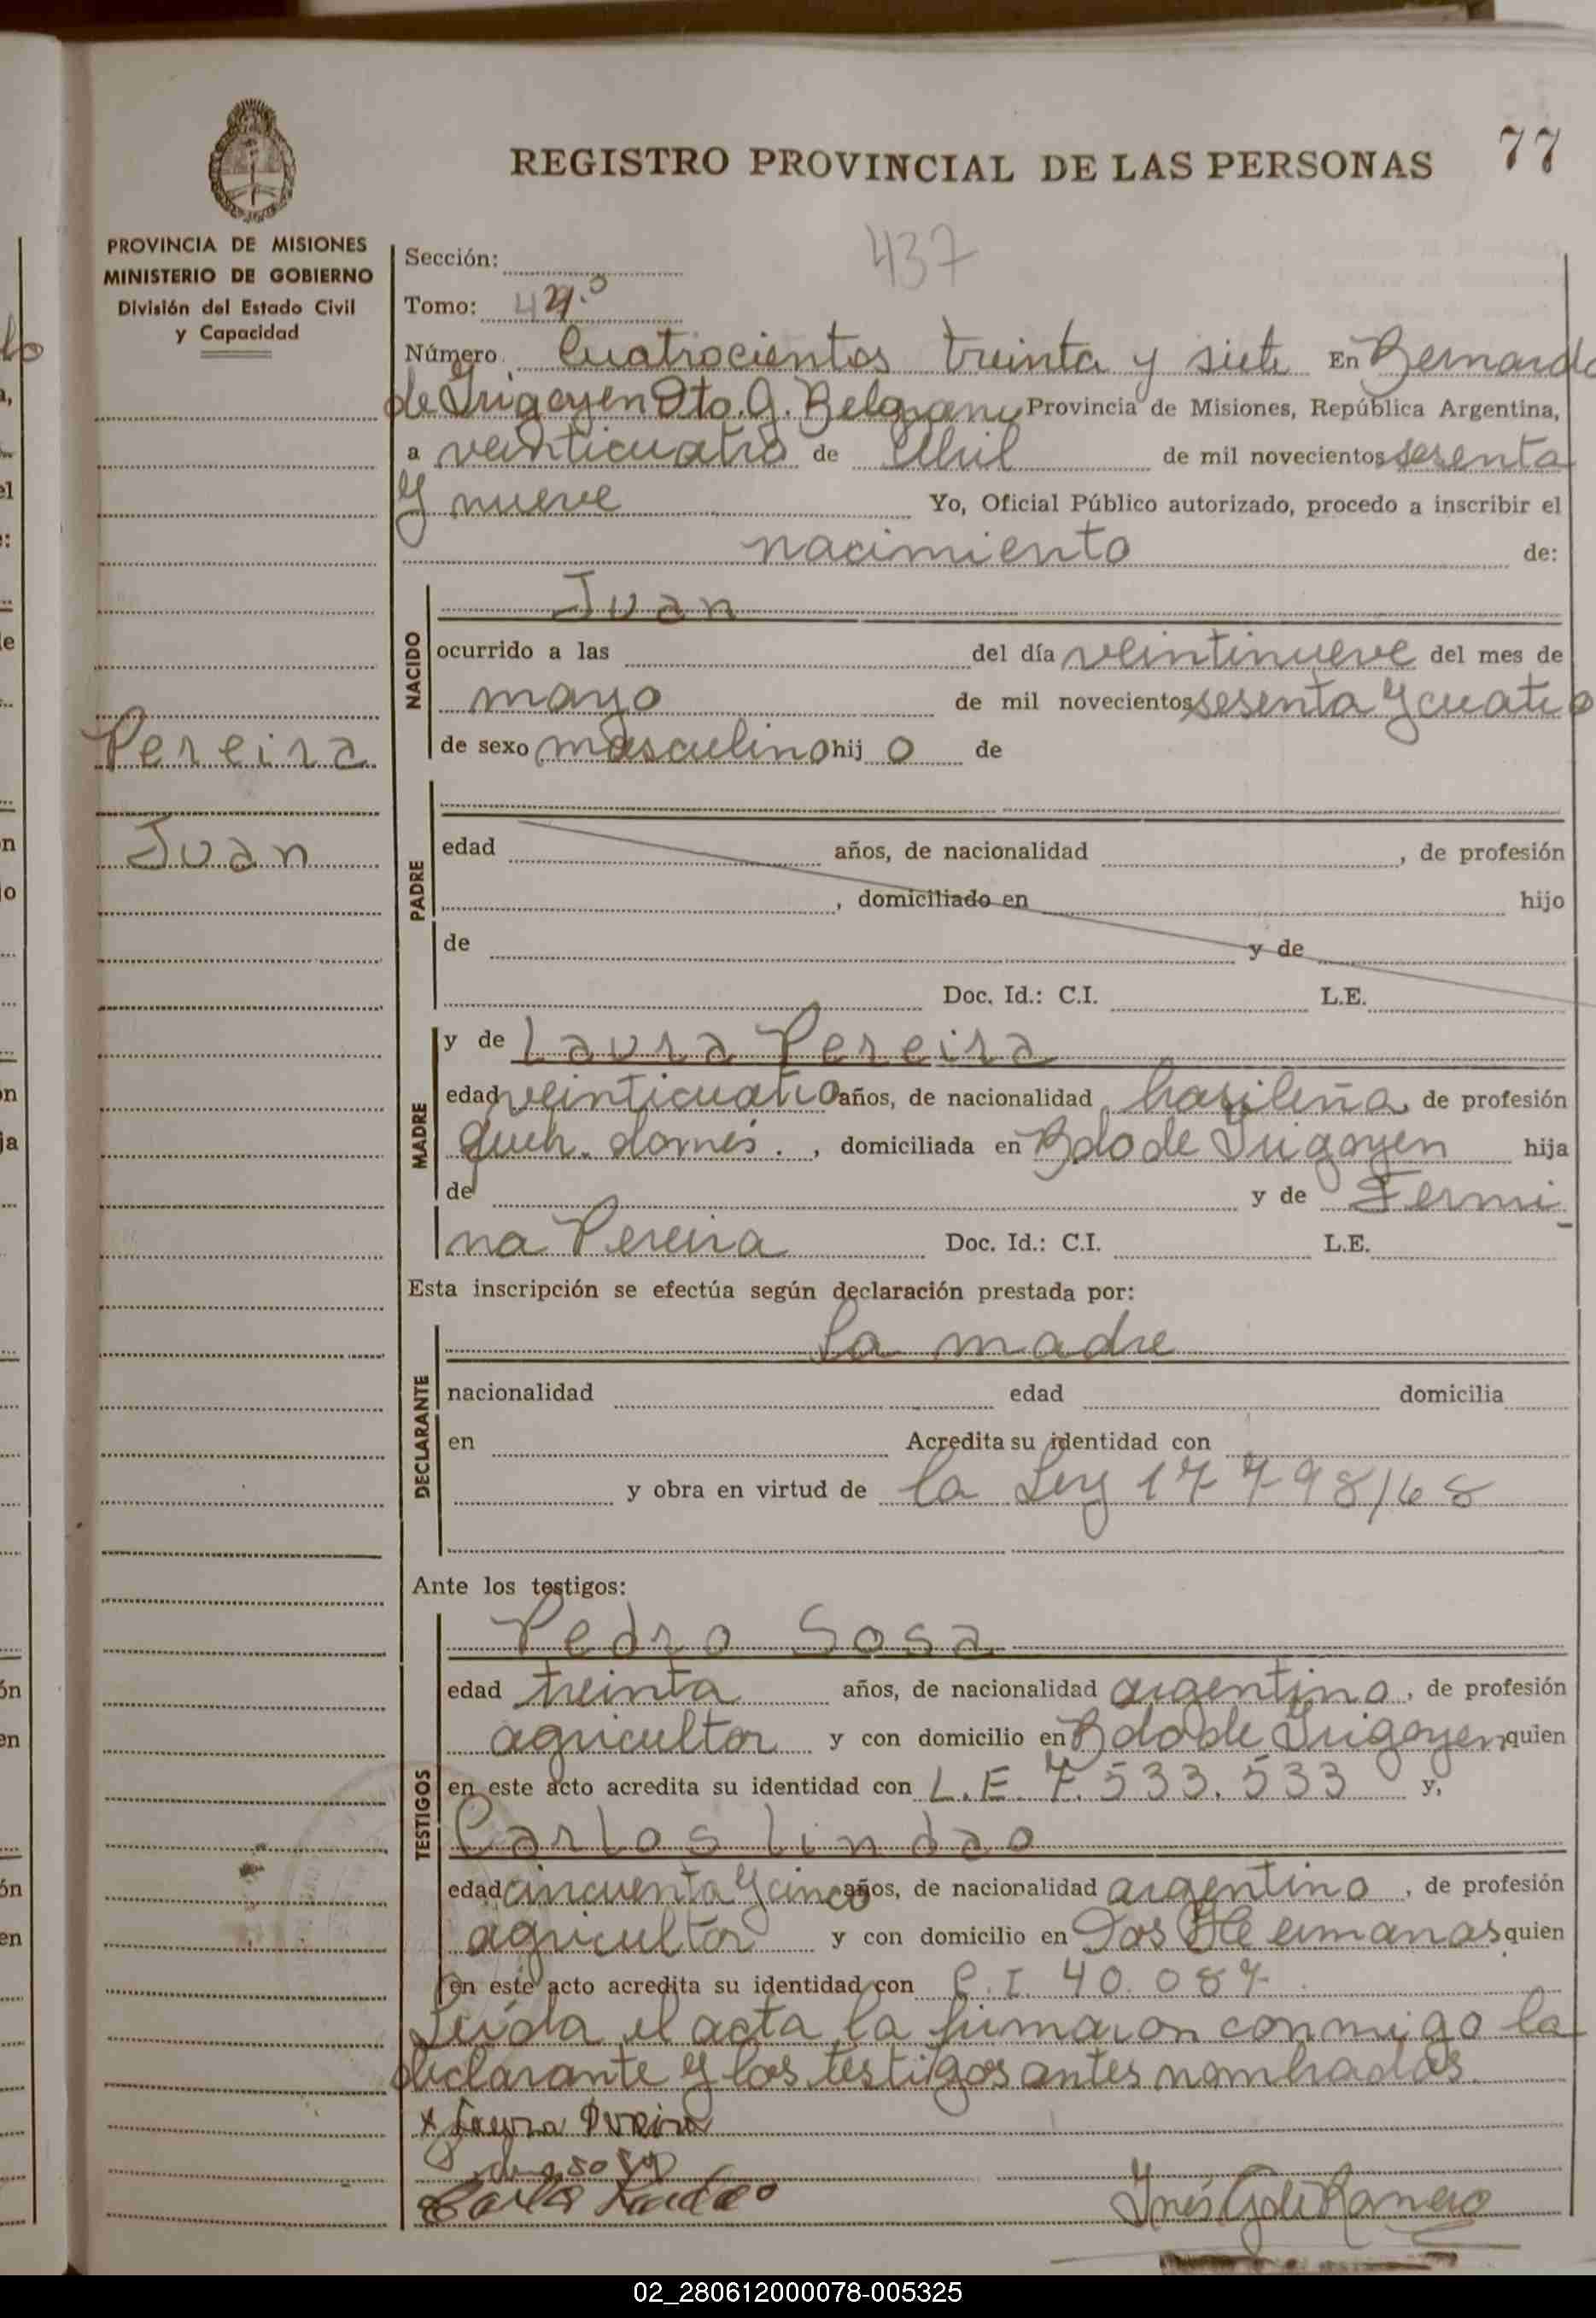 77
REGISTRO PROVINCIAL DE LAS PERSONAS
PROVINCIA DE MISIONES
MINISTERIO DE GOBIERNO
División del Estado Civil
y Capacidad
Pereira
Juan
437
Sección:
Tomo: 4
Número Cuatrocientos treinta y siete En Bernardo
de Irigoyen Dto. G. Belgrano Provincia de Misiones, República Argentina,
a veinticuatro de Abril de mil novecientos sesenta
y nueve Yo, Oficial Público autorizado, procedo a inscribir el
nacimiento de:
NACIDO
Juan
ocurrido a las del día veintinueve del mes de
mayo de mil novecientos sesenta y cuatro
de sexo masculino hij o de
PADRE
edad años, de nacionalidad , de profesión
, domiciliado en hijo
de y de
Doc. Id.: C.I. L.E.
MADRE
y de Laura Pereira
edad veinticuatro años, de nacionalidad brasileña, de profesión
queh. domés. , domiciliada en Bdo de Irigoyen hija
de y de Fermi
na Pereira Doc. Id.: C.I. L.E.
Esta inscripción se efectúa según declaración prestada por:
DECLARANTE
la madre
nacionalidad edad domicilia
en Acredita su identidad con
y obra en virtud de la Ley 17798/68
Ante los testigos:
TESTIGOS
Pedro Sosa
edad treinta años, de nacionalidad argentino, de profesión
agricultor y con domicilio en Bdo de Irigoyen quien
en este acto acredita su identidad con L.E. 7.533.533 y,
Carlos Lindao
edad cincuenta y cinco años, de nacionalidad argentino, de profesión
agricultor y con domicilio en Dos Hermanas quien
en este acto acredita su identidad con C.I. 40.087.
Leída el acta la firmaron conmigo la
declarante y los testigos antes nombrados.
x Laura Pereira
02_280612000078-005325